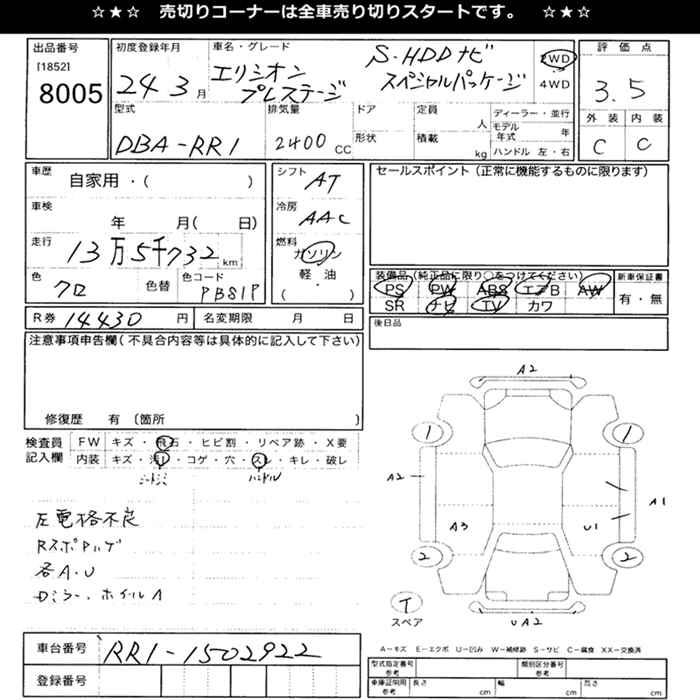 ☆★☆ 売切りコーナーは全車売り切りスタートです。 ☆★☆
出品番号
[1852]
8005
初度登録年月
24 3月
車名・グレード
エリシオン
プレステージ
S・HDDナビ
スペシャルパッケージ
2WD
4WD
評価点
3.5
外装 内装
C C
型式
DBA-RR1
排気量
2400 CC
ドア
形状
定員
人
積載
kg
ディーラー・並行
モデル年式 年
ハンドル 左・右
車歴
自家用・( )
車検
年 月( 日)
走行
13万5千732 km
色
クロ
色替
色コード
PB81P
シフト
AT
冷房
AAC
燃料
ガソリン
軽油
・
( )
セールスポイント(正常に機能するものに限ります)
装備品(純正品に限り○をつけてください)
PS PW ABS エアB AW
SR ナビ TV カワ
新車保証書
有・無
後日品
R券 14430 円
名変期限 月 日
注意事項申告欄(不具合内容等は具体的に記入して下さい)
修復歴 有 〔箇所 〕
検査員
記入欄
FW キズ・飛石・ヒビ割・リペア跡・X要
内装 キズ・汚レ・コゲ・穴・スレ・キレ・破レ
シートシミ
ハンドル
左電格不良
各A・U
A2
1 1
A2
A1
A3
U1
2 2
UA2
スペア
A-キズ E-エクボ U-凹み W-補修跡 S-サビ C-腐食 XX-交換済
車台番号
RR1-1502922
登録番号
型式指定番号
参考
類別区分番号
参考
車庫証明用
参考
長さ cm
幅 cm
高さ cm